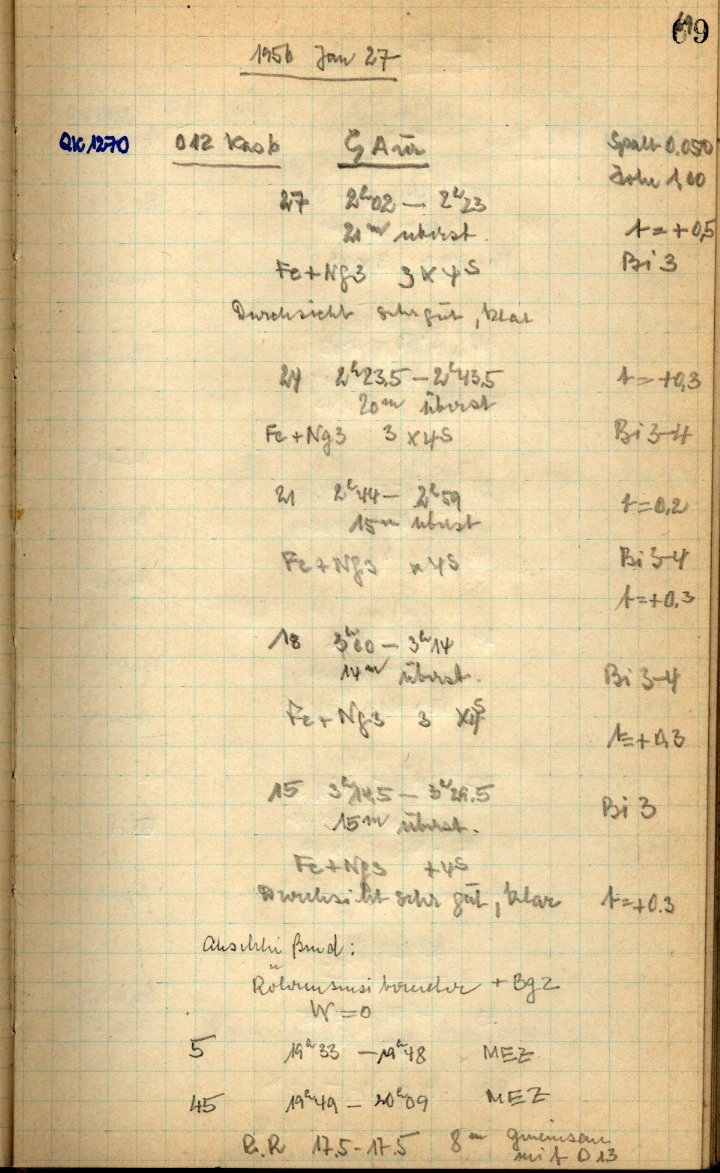 69
1956 Jan 27
QK 1270 012 Kasb ζ Aur Spalt 0.050
Höhe 1,00
27 2ʰ02 — 2ʰ23
21ᵐ überst. t = +0,5
Fe+Ng3 3 x 4ˢ Bi 3
Durchsicht sehr gut, klar
24 2ʰ23,5 — 2ʰ43,5 t = +0,3
20ᵐ überst
Fe+Ng3 3 x 4ˢ Bi 3-4
21 2ʰ44 — 2ʰ59 t = 0,2
15ᵐ überst
Fe+Ng3 x 4ˢ Bi 3-4
t = +0.3
18 3ʰ00 — 3ʰ14
14ᵐ überst. Bi 3-4
Fe+Ng3 3 x 4ˢ
t = +0,3
15 3ʰ14,5 — 3ʰ29.5 Bi 3
15ᵐ überst.
Fe+Ng3 +4ˢ
Durchsicht sehr gut, klar t = +0.3
Anschließend:
+ Bg2
W = 0
5 19ʰ33 — 19ʰ48 MEZ
45 19ʰ49 — 20ʰ09 MEZ
R.R 17.5-17.5 8ᵐ gemeinsam
mit 013